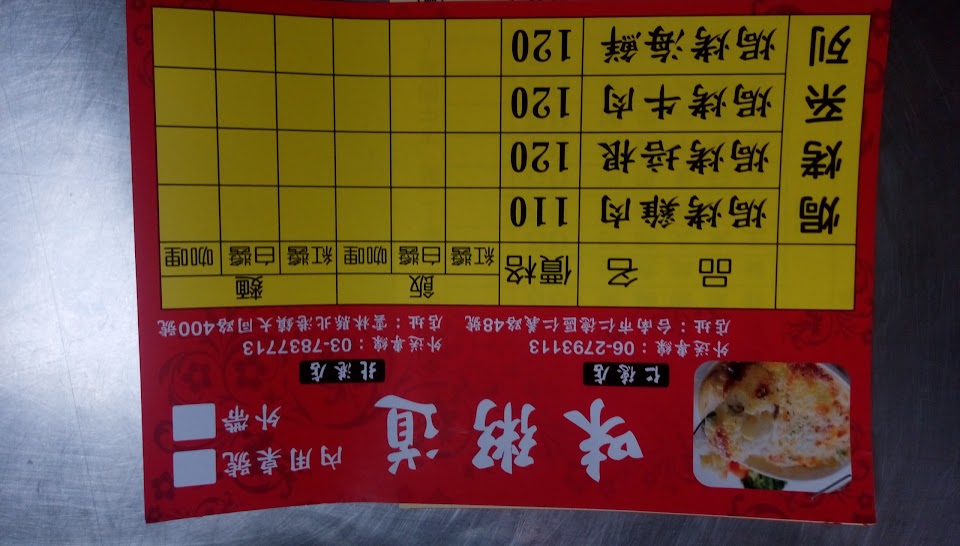 味粥道
內用桌號
外帶
仁德店
北港店
外送專線：06-2793113
外送專線：03-7837713
店址：台南市仁德區仁義路48號
店址：雲林縣北港鎮大同路400號
品名 價格 飯 麵
紅醬 白醬 咖哩 紅醬 白醬 咖哩
焗烤系列
焗烤雞肉 110
焗烤培根 120
焗烤牛肉 120
焗烤海鮮 120